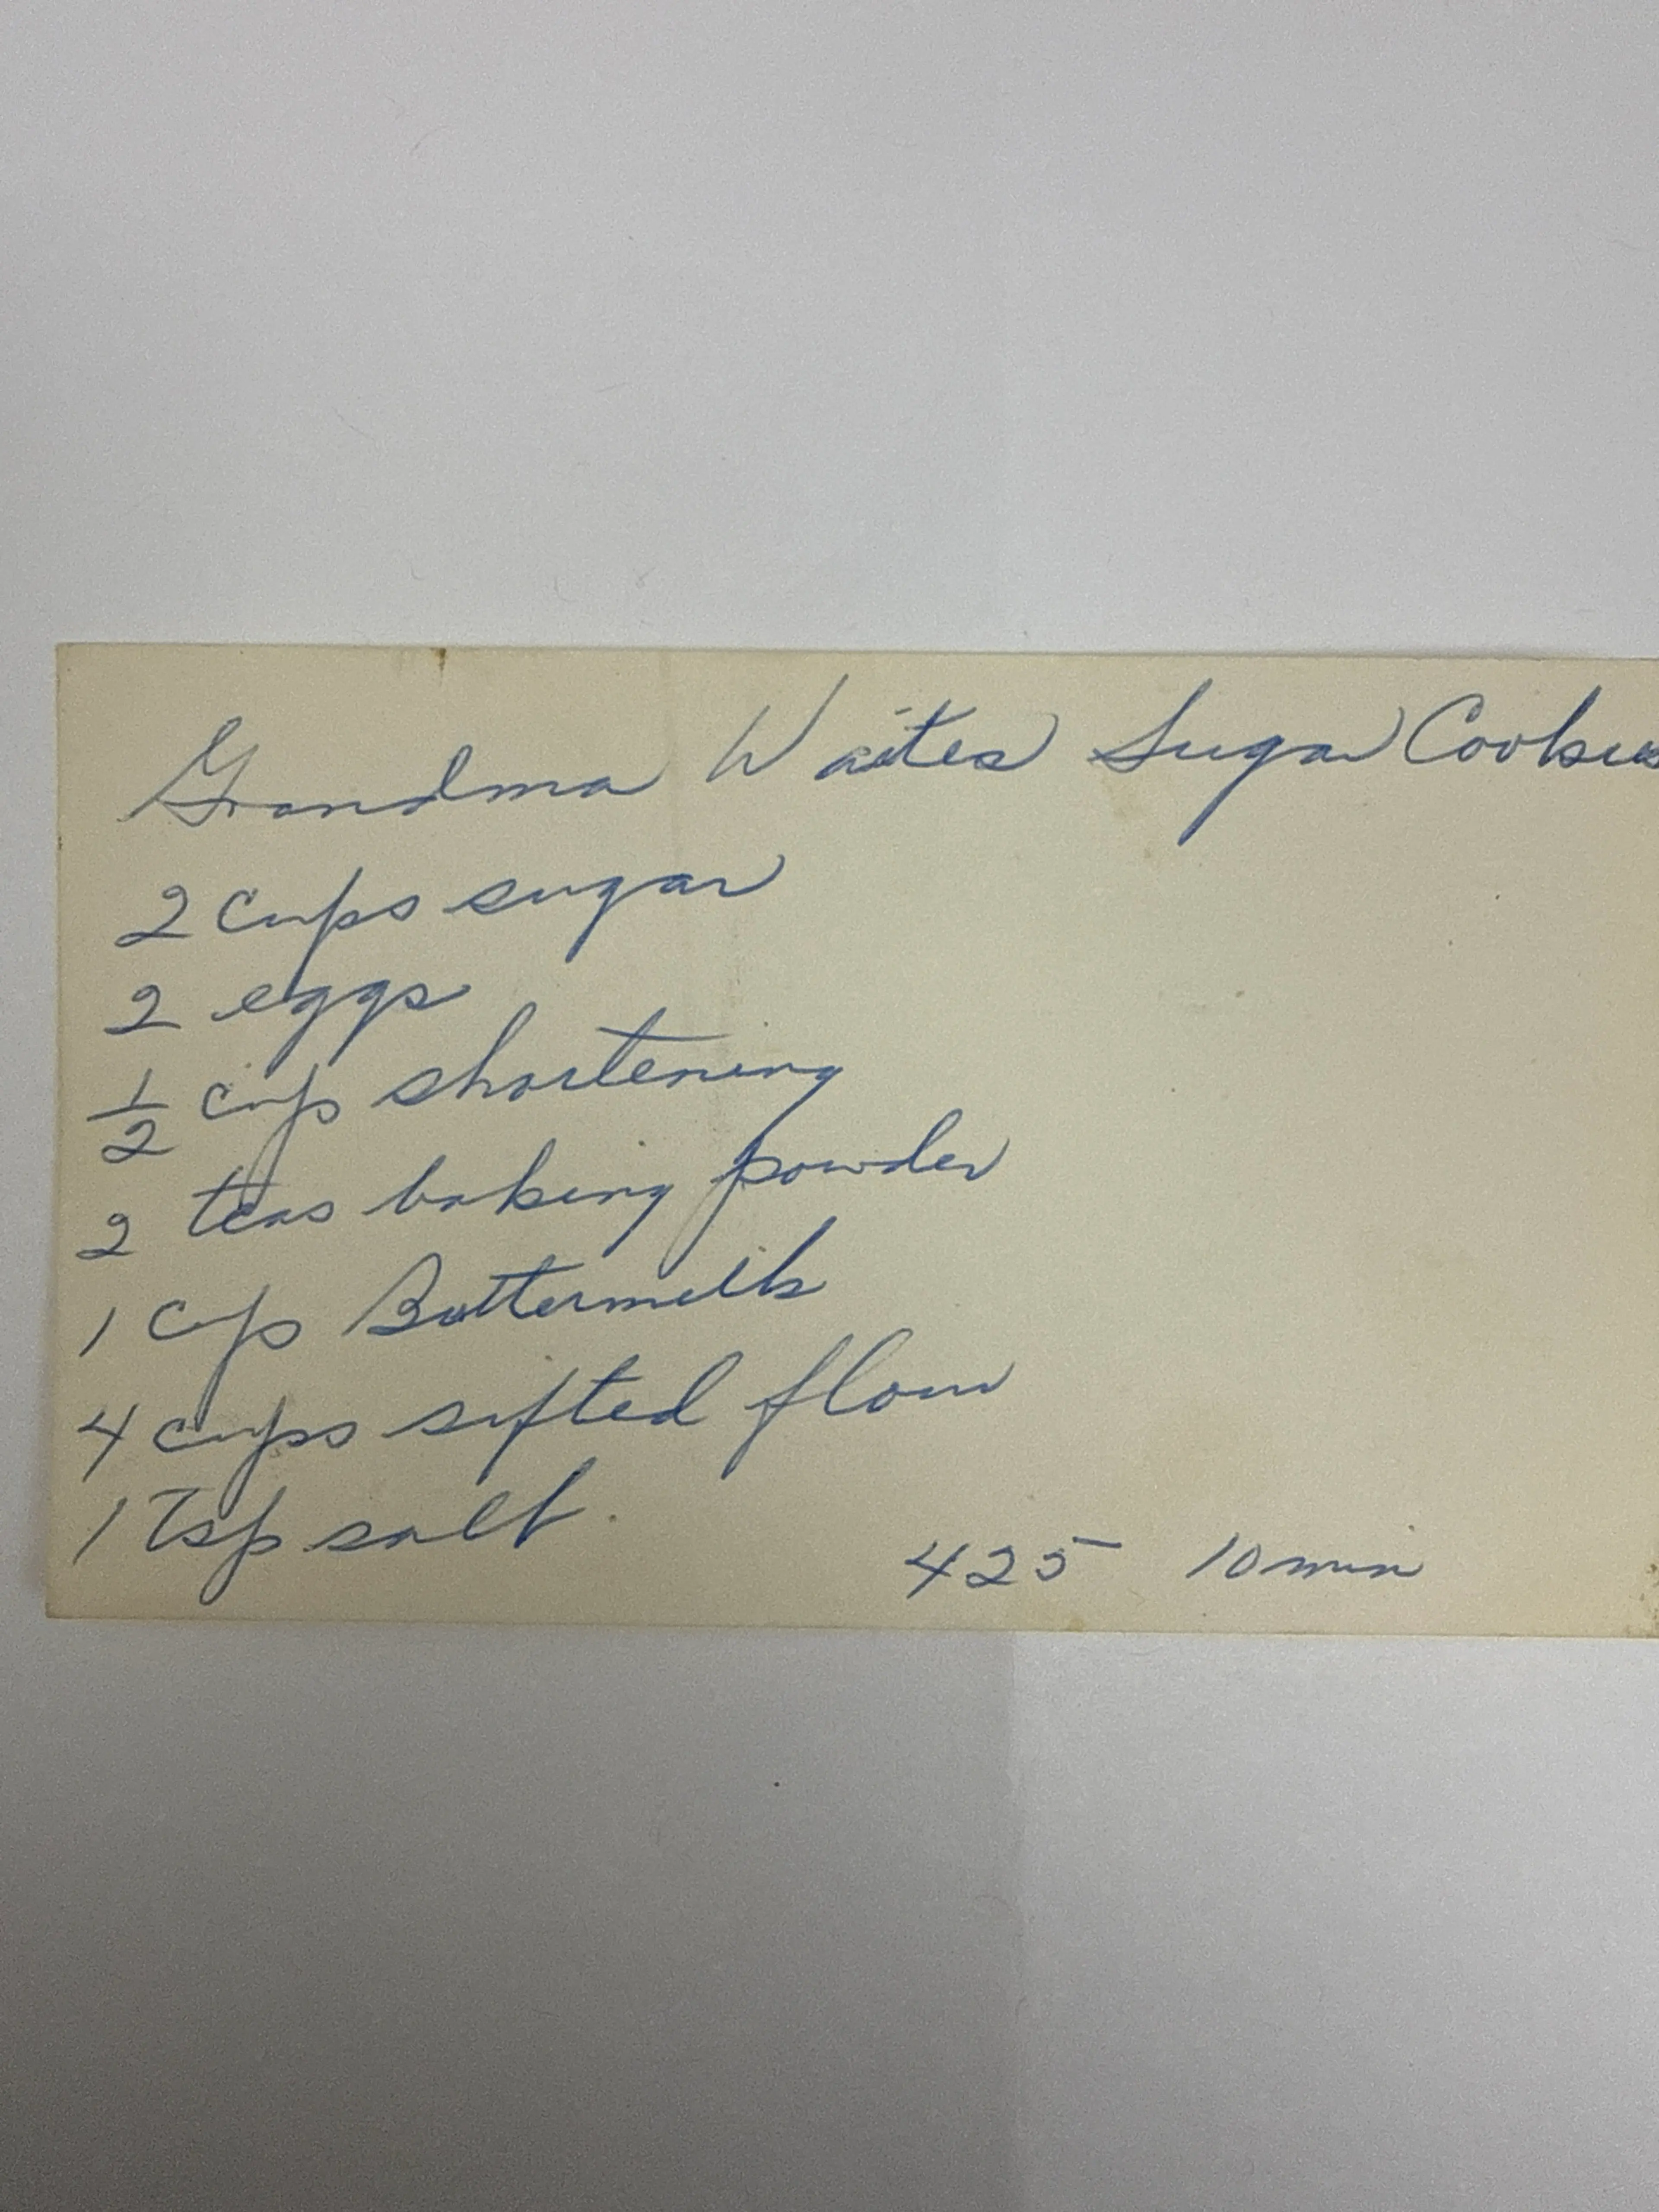 Grandma Waites Sugar Cookies
2 cups sugar
2 eggs
1/2 cup shortening
2 teas baking powder
1 cup Buttermilk
4 cups sifted flour
1 Tsp salt.
425 10 min